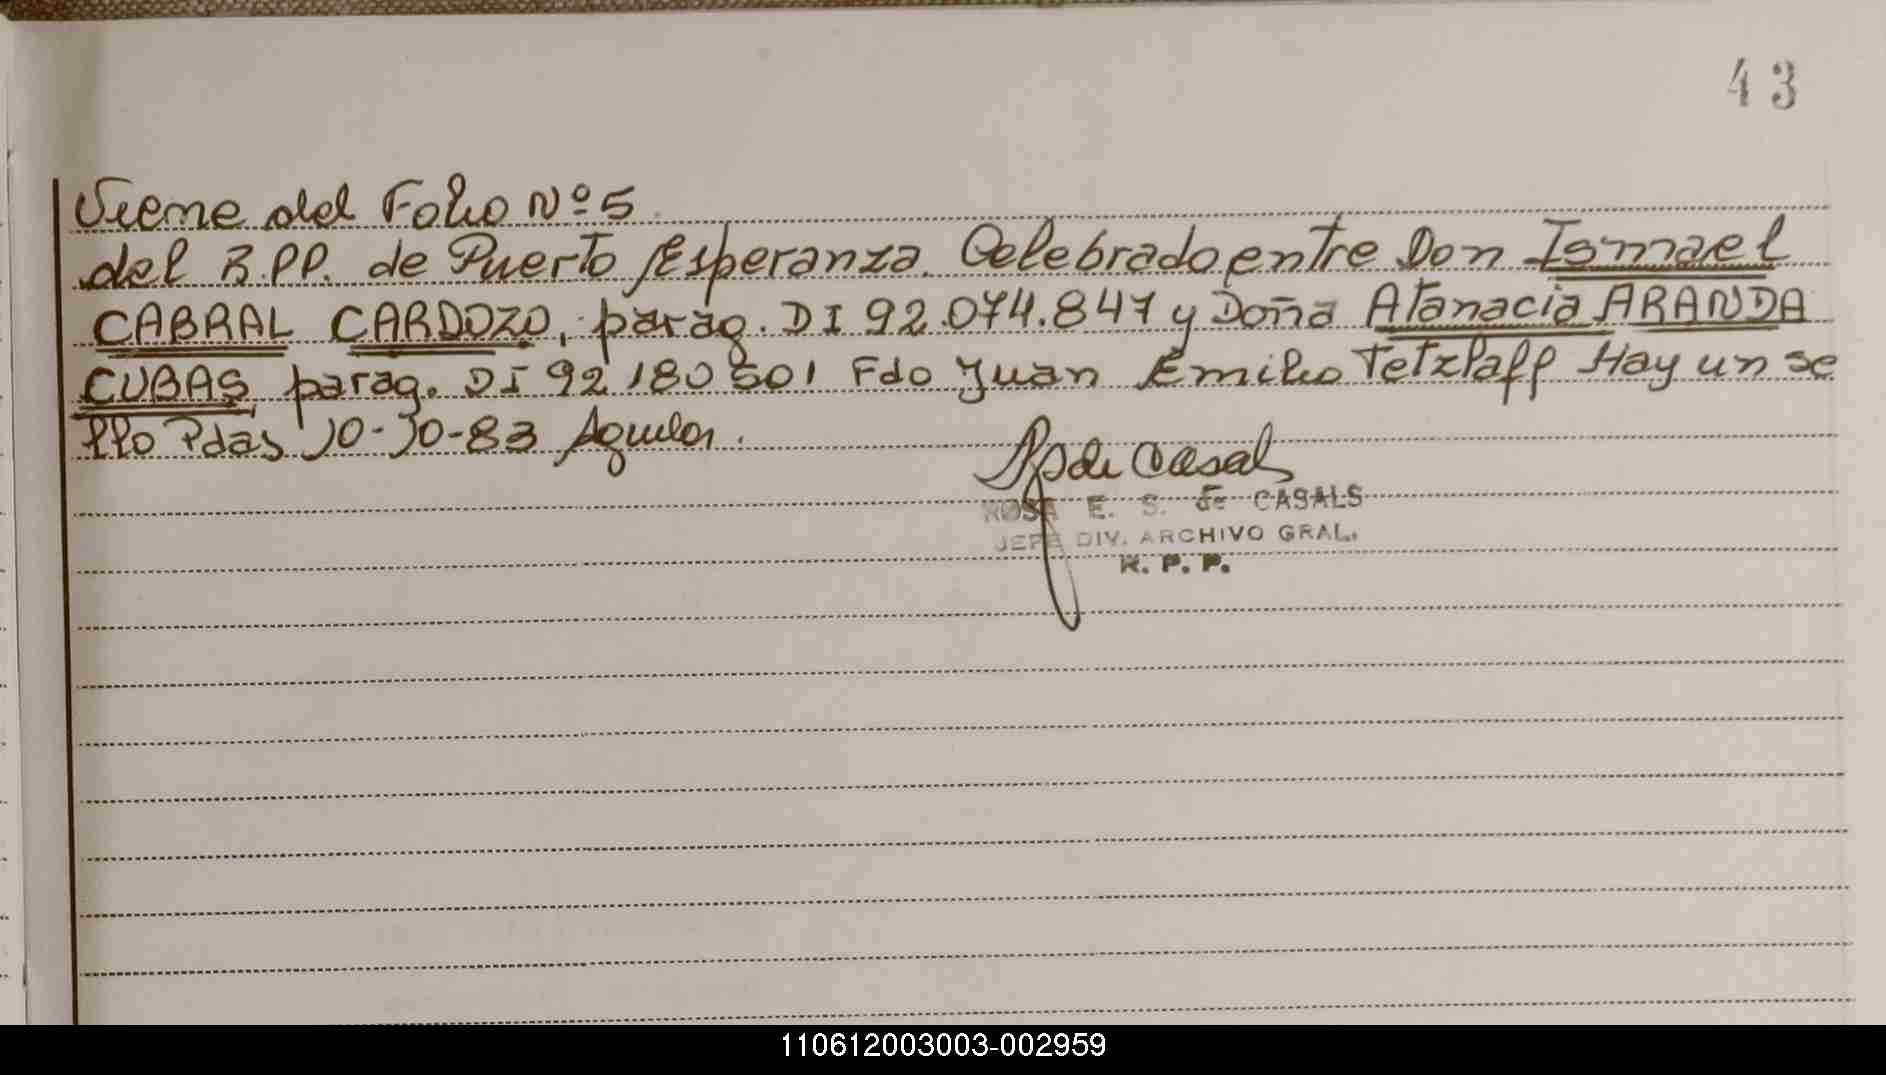 43
Viene del Folio Nº 5
del R.PP. de Puerto Esperanza. Celebrado entre Don Ismael
CABRAL CARDOZO, parag. DI 92.074.847 y Doña Atanacia ARANDA
CUBAS, parag. DI 92 180 501 Fdo Juan Emilio Tetzlaff Hay un se
llo Pdas 10-10-83 Aguilar.
de Casals
ROSA E. S. de CASALS
JEFE DIV. ARCHIVO GRAL.
R. P. P.
110612003003-002959